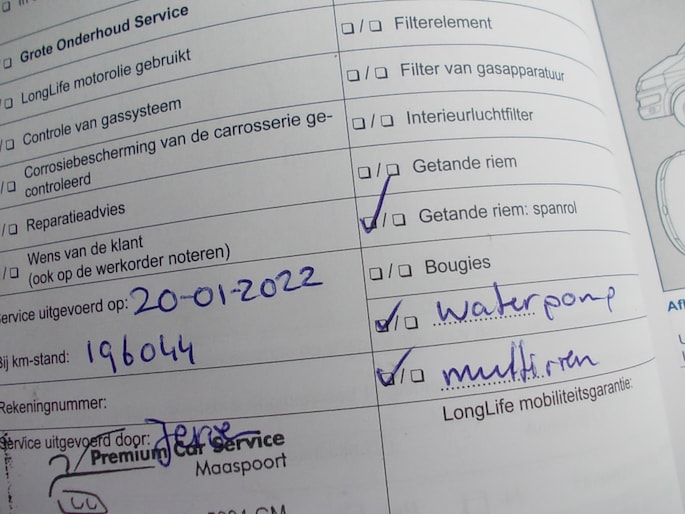 Grote Onderhoud Service
LongLife motorolie gebruikt
Controle van gassysteem
Corrosiebescherming van de carrosserie ge-
controleerd
Reparatieadvies
Wens van de klant
(ook op de werkorder noteren)
Service uitgevoerd op: 20-01-2022
Bij km-stand: 196044
Rekeningnummer:
Service uitgevoerd door:
Premium Car Service
Maaspoort
Filterelement
Filter van gasapparatuur
Interieurluchtfilter
Getande riem
Getande riem: spanrol
Bougies
waterpomp
multirien
LongLife mobiliteitsgarantie: